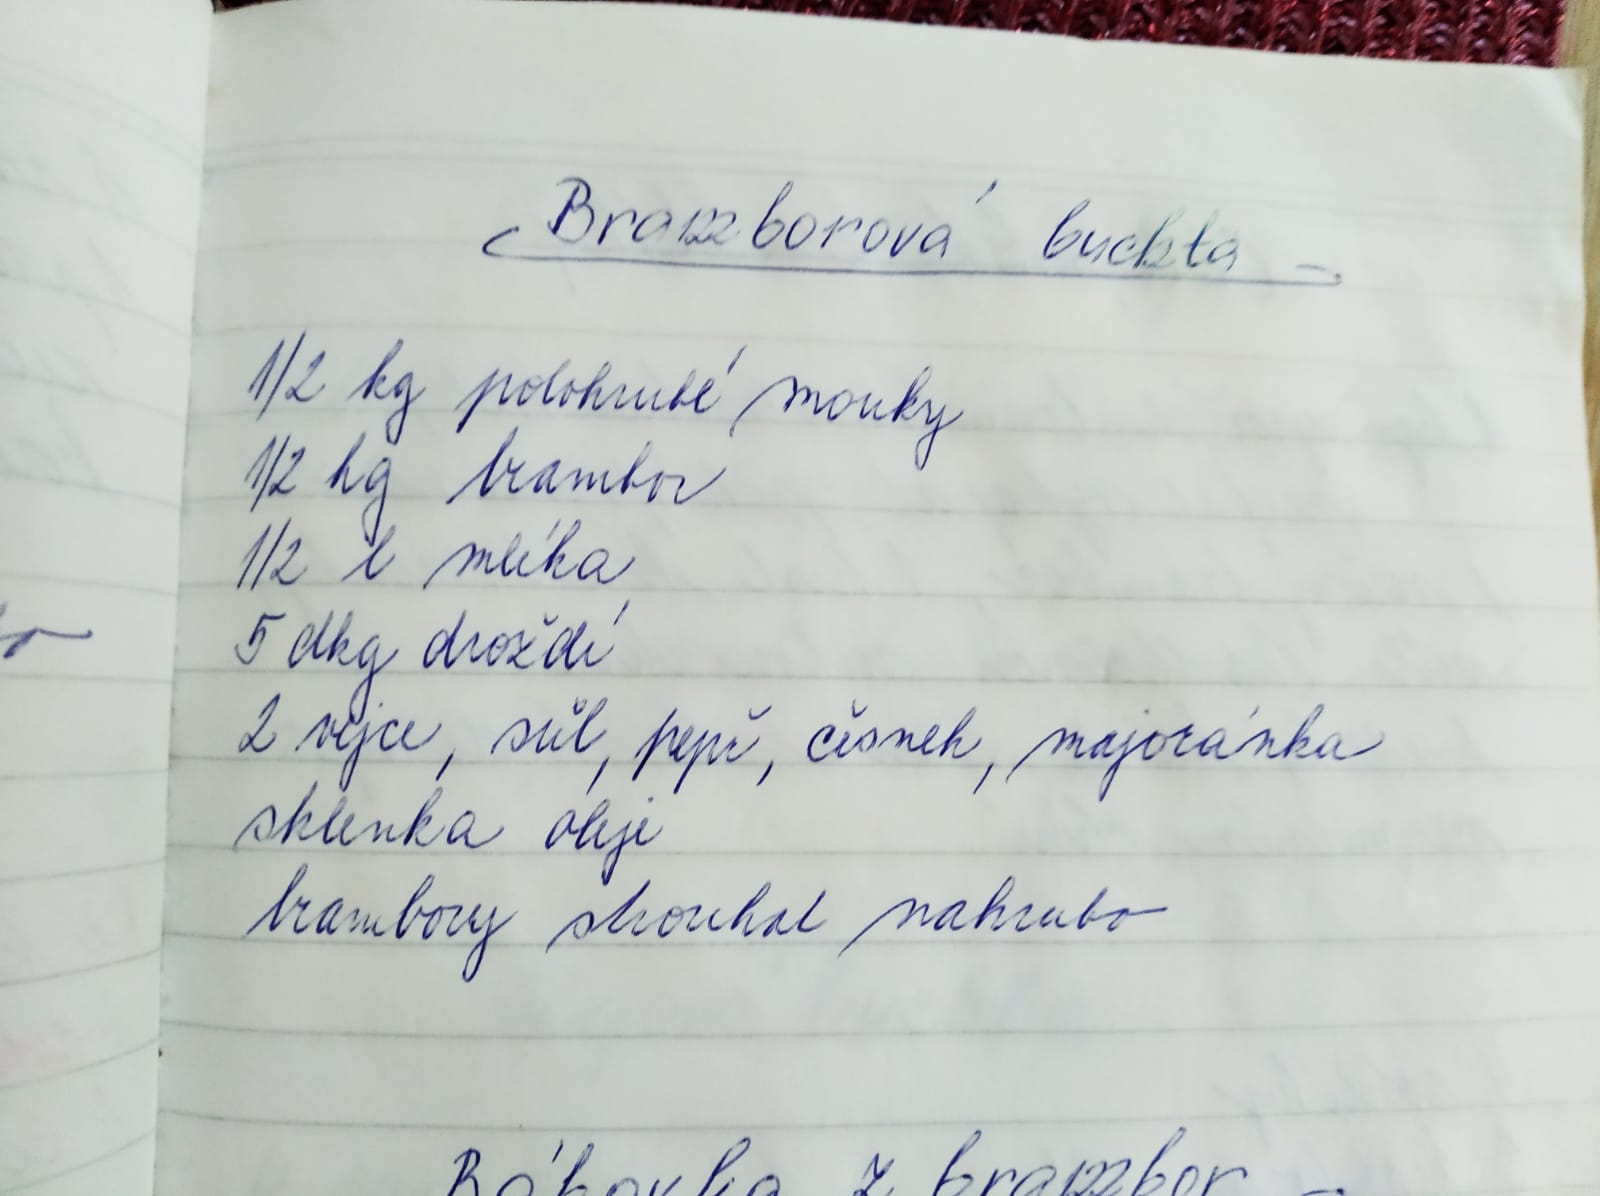 Bramborová buchta
1/2 kg polohrubé mouky
1/2 kg brambor
1/2 l mlíka
5 dkg droždí
2 vejce, sůl, pepř, česnek, majoránka
sklenka oleje
brambory strouhat nahrubo
Bábovka z brambor